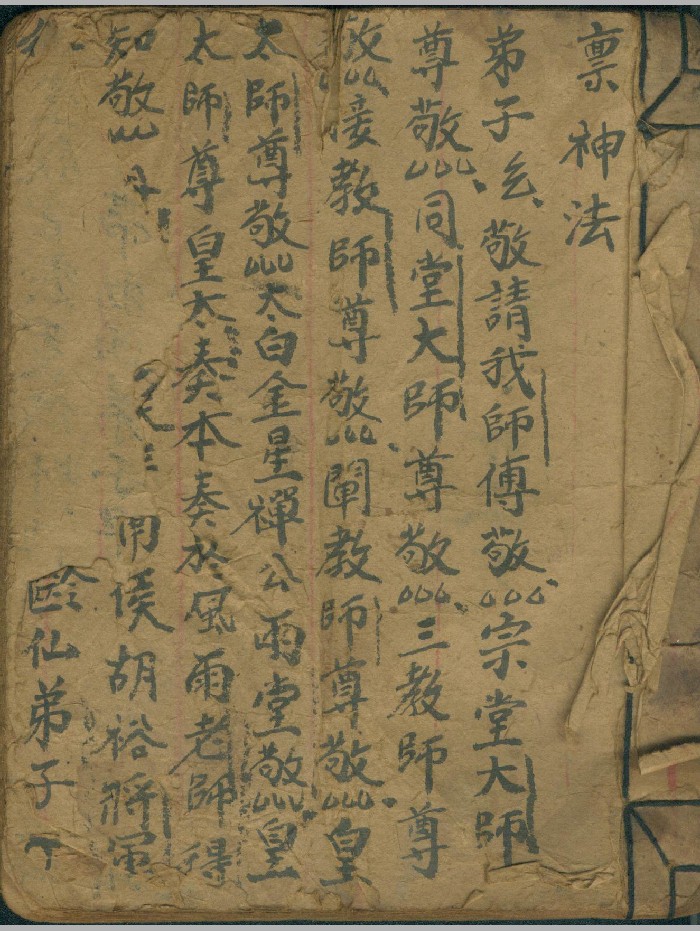 禀神法
弟子㐰敬請我師傳敬灬宗堂大師
尊敬灬同堂大師尊敬灬三教師尊
敬灬接教師尊敬灬闡教師尊敬灬皇
太師尊敬灬太白金星禪公雨堂敬灬皇
太師尊皇太奏本奏於風雨老師得
知敬灬
用侯胡裕將軍
仙弟子